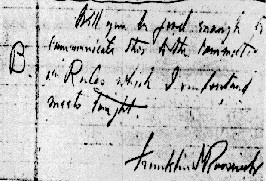 Will you be good enough to
communicate this to the Committee
B.
on Rules which I understand
meets tonight.
Franklin D Roosevelt